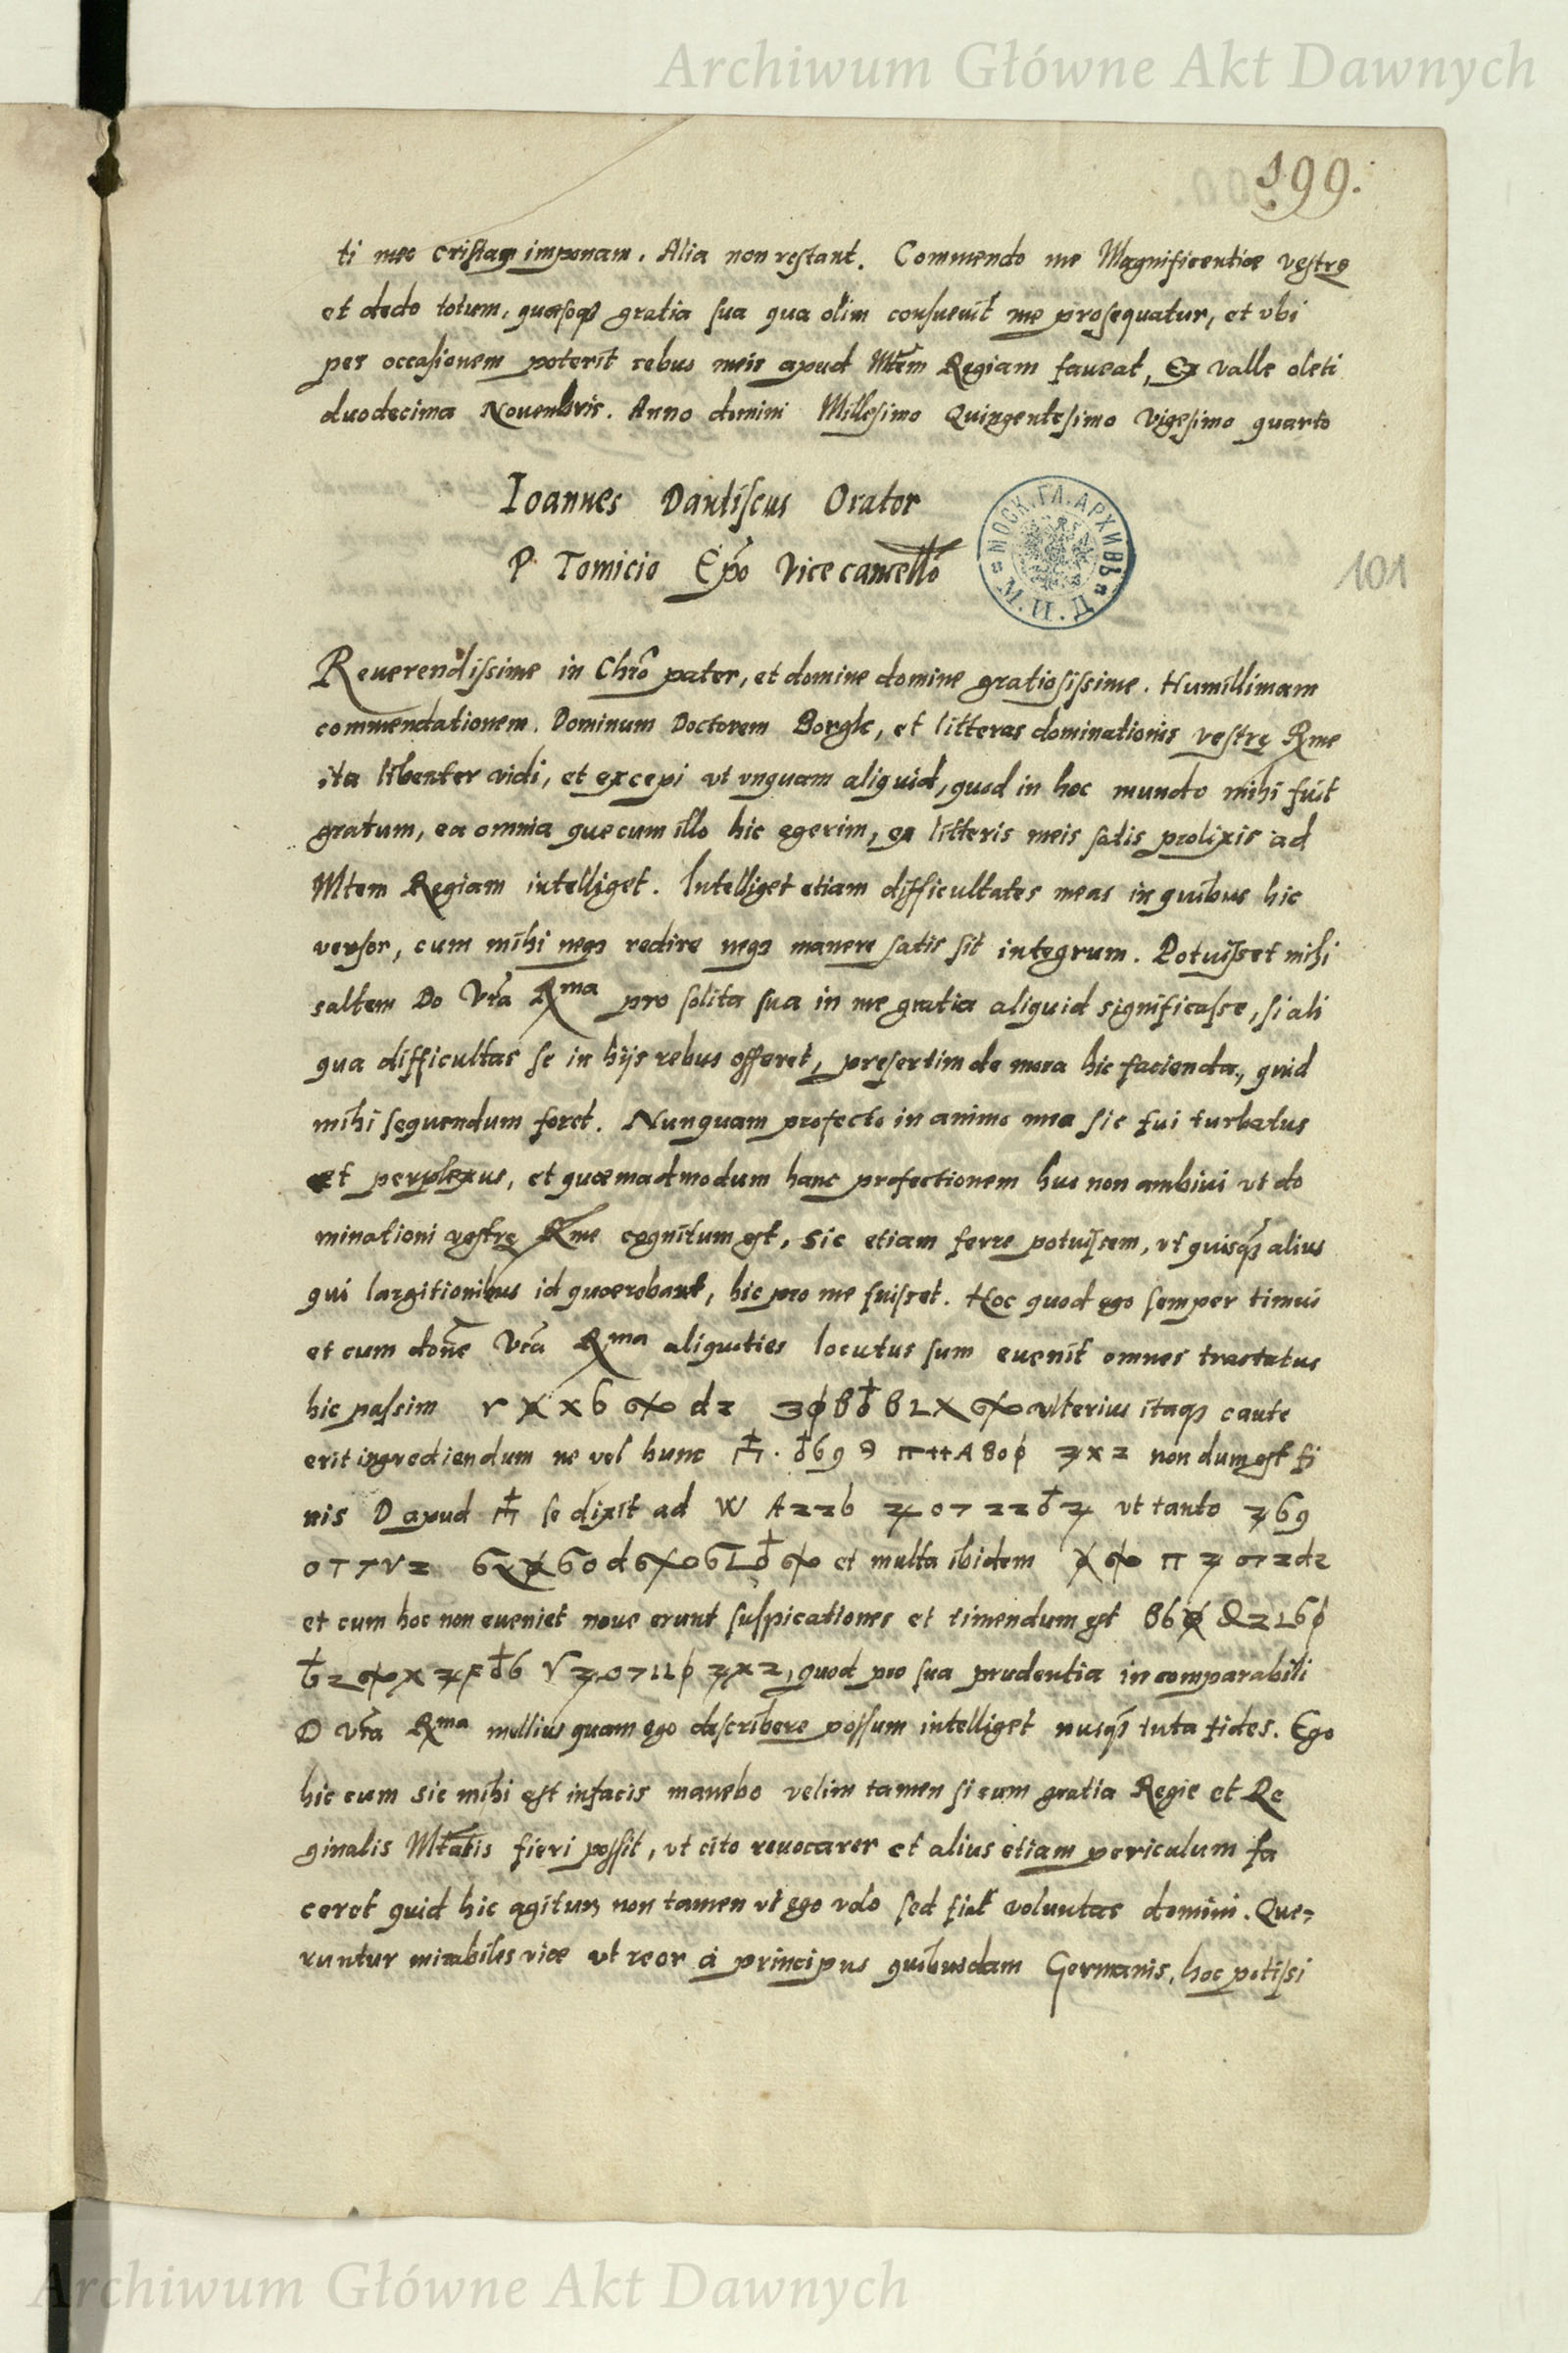 Archiwum Główne Akt Dawnych
199.
ti meo cristam imponam. Alia non restant. Commendo me Magnificentiæ vestrę
et dedo totum, quæsoqȝ gratia sua qua olim consuevit me prosequatur, et vbi
per occasionem poterit rebus meis apud Mtem Regiam faveat, Ex valle oleti
duodecima Nouembris. Anno domini Millesimo Quingentesimo Vigesimo quarto
Ioannes Dantiscus Orator
P Tomicio Epo Vicecancello
МОСК. ГЛ. АРХИВЪ М. И. Д.
101
Reuerendissime in Chro pater, et domine domine gratiosissime. Humillimam
commendationem. Dominum Doctorem Borgk, et litteras dominationis vestrę Rme
ita libenter vidi, et excepi ut vnquam aliquid, quod in hoc mundo mihi fuit
gratum, ea omnia que cum illo hic egerim, ex litteris meis satis prolixis ad
Mtem Regiam intelliget. Intelliget etiam difficultates meas in quibus hic
versor, cum mihi neqȝ redire neqȝ manere satis sit integrum. Potuisset mihi
saltem Do Vra Rma pro solita sua in me gratia aliquid significasse, si ali
qua difficultas se in hijs rebus offeret, presertim de mora hic facienda, quid
mihi sequendum foret. Nunquam profecto in animo meo sic fui turbatus
et perplexus, et quæmadmodum hanc profectionem huc non ambiui ut do
minationi vestrę Rme cognitum est, sic etiam ferre potuissem, vt quisqȝ alius
qui largitionibus id quærebant, hic pro me fuisset. Hoc quod ego semper timui
et cum done Vra Rma aliquoties locutus sum euenit omnes tractatus
hic passim ulterius itaqȝ caute
erit ingrediendum ne vel hunc non dum est fi
nis D apud se dixit ad ut tanto
et multa ibidem
et cum hoc non eueniet noue erunt suspicationes et timendum est
quod pro sua prudentia incomparabili
D Vra Rma mellius quam ego describere possum intelliget nusqȝ tuta fides. Ego
hic cum sic mihi est in facis manebo velim tamen si cum gratia Regie et Re
ginalis Mtatis fieri possit, vt cito reuocarer et alius etiam periculum fa
ceret quid hic agitur non tamen vt ego volo sed fiat voluntas domini. Que=
runtur mirabiles viæ ut reor a principus quibusdam Germanis, hoc potissi
Archiwum Główne Akt Dawnych